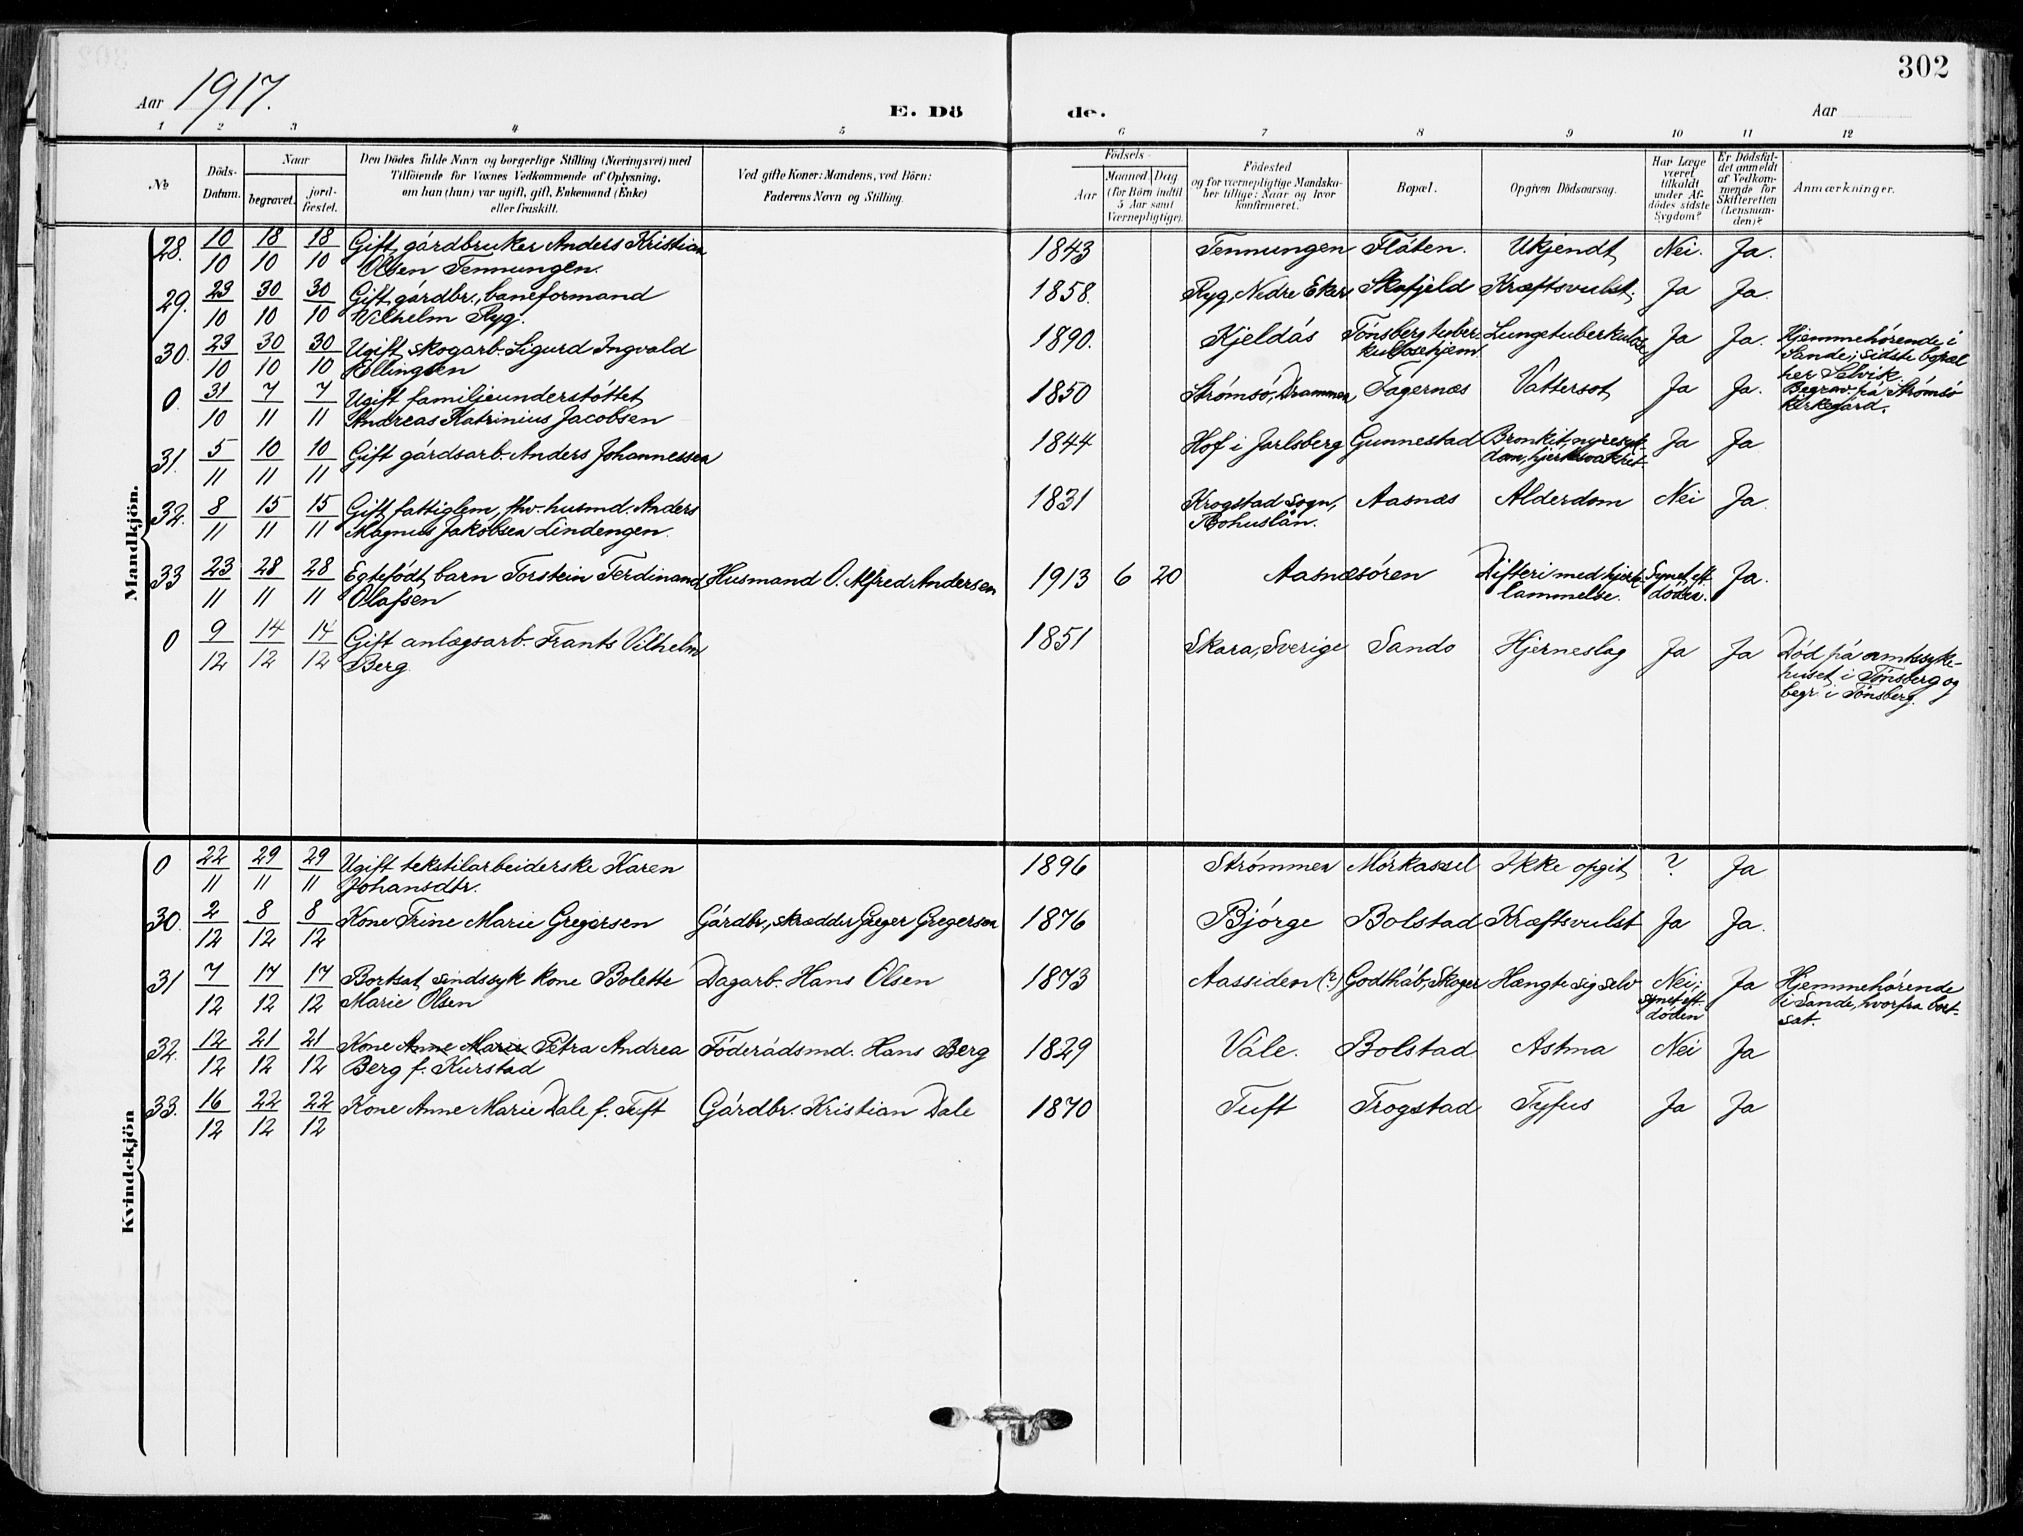 302
Aar 1917.
E. Dö de.
Aar
1 2 3 4 5 6 7 8 9 10 11 12
No
Döds-Datum.
Naar
begravet.
jord-fæstet.
Den Dödes fulde Navn og borgerlige Stilling (Næringsvei) med
Tilföiende for Voxnes Vedkommende af Oplysning,
om han (hun) var ugift, gift, Enkemand (Enke)
eller fraskilt.
Ved gifte Koner: Mandens, ved Börn:
Faderens Navn og Stilling.
Födsels-
Aar
Maaned. Dag
(for Börn indtil
5 Aar samt
Værnepligtige).
Födested
og for værnepligtige Mandska-
ber tillige: Naar og hvor
konfirmeret.
Bopæl.
Opgiven Dödsaarsag.
Har Læge
været
tilkaldt
under Af-
dödes sidste
Sygdom?
Er Dödsfal-
det anmeldt
af Vedkom-
mende for
Skifteretten
(Lensman-
den)?
Anmærkninger.
Mandkjön.
28. 10/10 18/10 18/10 Gift gårdbruker Anders Kristian 1843 Tennungen Flåten. Ukjendt Nei. Ja.
Olsen Tennungen.
29. 23/10 30/10 30/10 Gift gårdbr., baneformand 1858. Ryg, Nedre Eker Skafjeld Kræftsvulst. Ja Ja.
Vilhelm Ryg.
30. 23/10 30/10 30/10 Ugift skogarb. Sigurd Ingvald 1890. Kjeldås Tönsberg tuber- Lungetuberkulose Ja Ja. Hjemmehörende i
Ellingsen kulosehjem Sande; sidste bopæl
her Selvik
0. 31/10 7/11 7/11 Ugift familjeunderstöttet 1850 Strömsö, Drammen Fagernæs Vattersot Ja Ja. Begrav. på Strömsö
Andreas Katrinius Jacobsen kirkegård.
31. 5/11 10/11 10/11 Gift gårdsarb. Anders Johannessen 1844 Hof i Jarlsberg Gunnestad Bronkit, nyresyk- Ja Ja
dom, hjertesvakhet
32. 8/11 15/11 15/11 Gift fattiglem, fhv. husmd. Anders 1831 Krogstad sogn, Aasnæs Alderdom Nei Ja.
Magnus Jakobsen Lindengen. Bohuslän.
33 23/11 28/11 28/11 Egtefödt barn Torstein Ferdinand Husmand O. Alfred Andersen 1913 6 20 Aasnæsören Difteri med hjerte- Synet eft. Ja.
Olafsen lammelse. döden.
0 9/12 14/12 14/12 Gift anlægsarb. Frants Vilhelm 1851 Skara, Sverige Sando Hjerneslag Ja Ja Död på amtssyke-
Berg. huset i Tönsberg og
begr. i Tönsberg.
Kvindekjön
0 22/11 29/11 29/11 Ugift tekstilarbeiderske Karen 1896 Strömmen Mörkassel Ikke opgit ? Ja
Johansdtr.
30. 2/12 8/12 8/12 Kone Trine Marie Gregersen Gårdbr., skrædder Greger Gregersen 1876 Björge Bolstad Kræftsvulst Ja Ja.
31 7/12 17/12 17/12 Bortsat sindssyk kone Bolette Dagarb. Hans Olsen 1873 Aassiden (?) Godthåb, Skoger Hængte sig selv Nei; Ja Hjemmehörende
Marie Olsen synet eft. i Sande, hvorfra bort-
döden sat.
32. 12/12 21/12 21/12 Kone Anne Marie Petra Andrea Föderådsmd. Hans Berg 1829 Våle. Bolstad Astma Nei Ja
Berg f. Kurstad
33. 16/12 22/12 22/12 Kone Anne Marie Dale f. Tuft Gårdbr. Kristian Dale 1870 Tuft Trogstad Tyfus Ja Ja